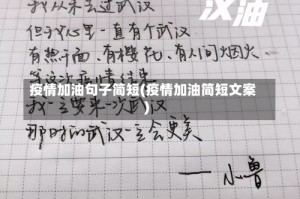 汉油
从未去过武汉
但于心里一直有个武汉
有热干面、有樱花、有人间烟火
等这次疫情结束
疫情加油句子简短(疫情加油简短文案)
我一定要来一次武汉
那时的武汉一定会更美
——小鲁